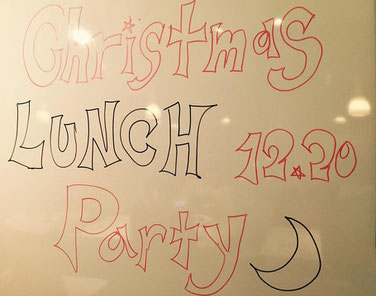 Christmas
LUNCH 12.20
Party